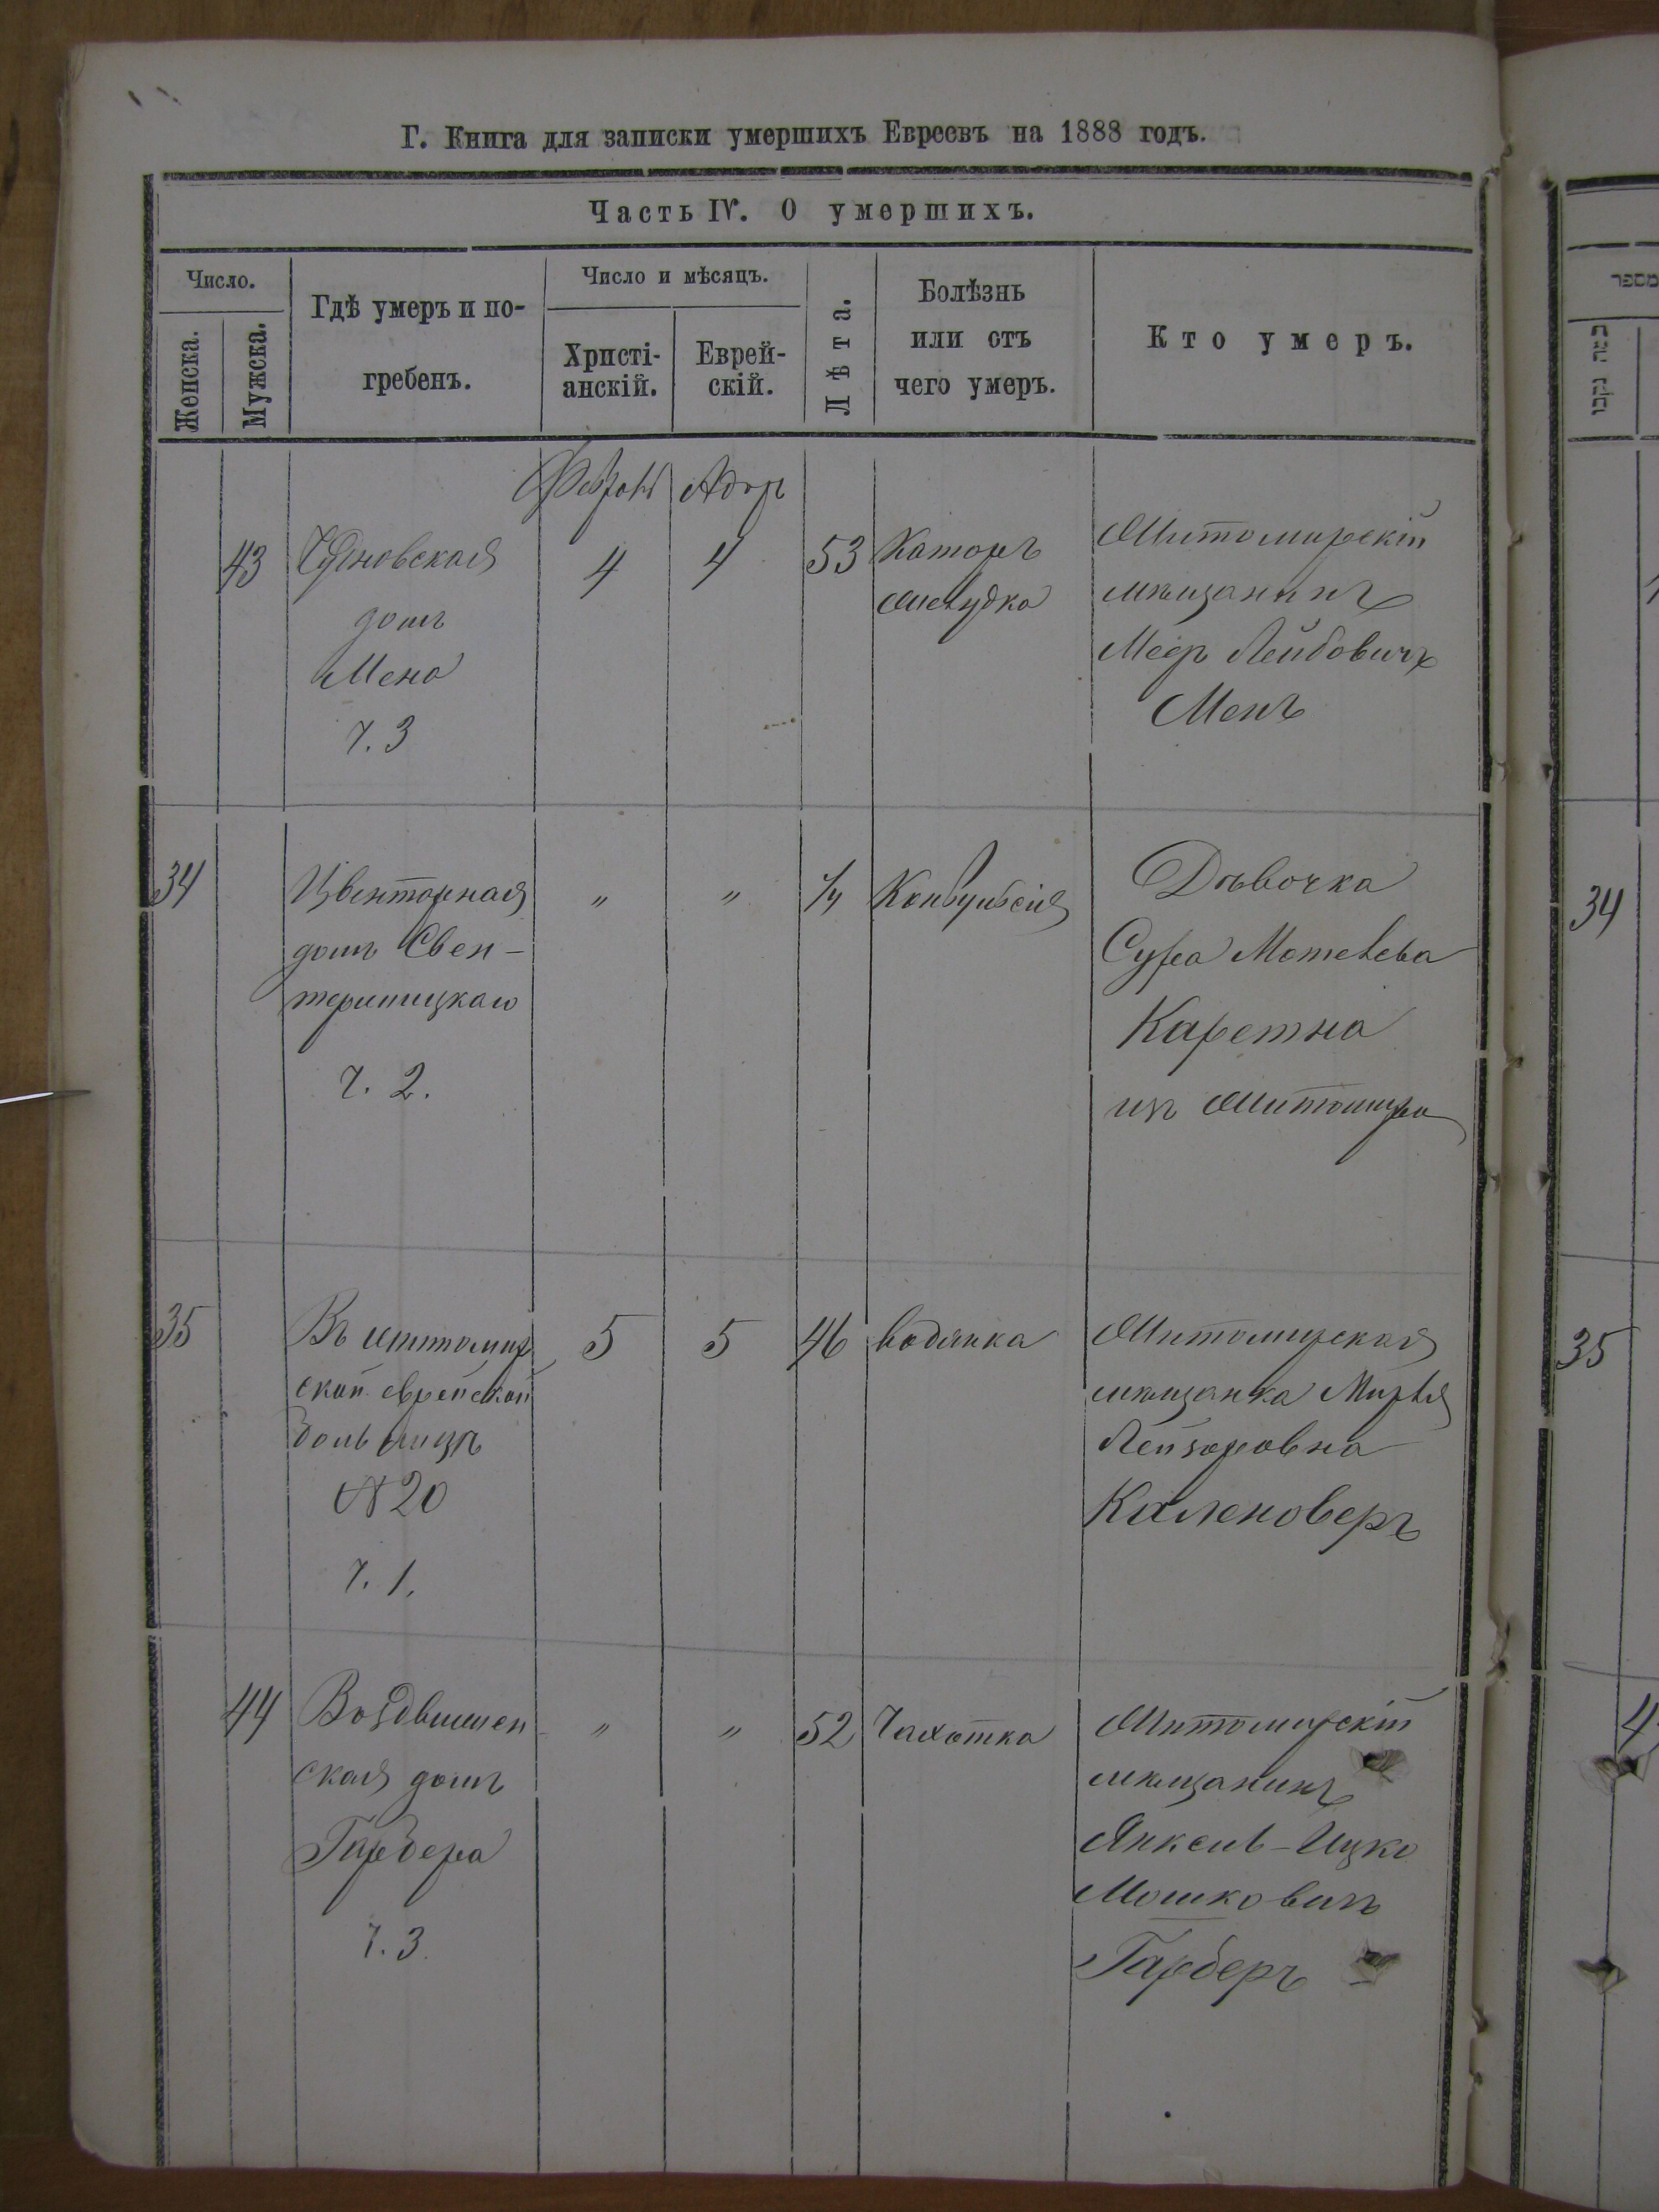 Г. Книга для записки умершихъ Евреевъ на 1888 годъ.
Часть IV. О умершихъ.
Число.
Женска.
Мужска.
Гдѣ умеръ и по-
гребенъ.
Число и мѣсяцъ.
Христі-
анскій.
Еврей-
скій.
Лѣта.
Болѣзнь
или отъ
чего умеръ.
Кто умеръ.
Адаръ
43
Чудновская
домъ
Мена
ч. 3
4
4
53
Катаръ
желудка
Житомирскій
мѣщанинъ
Меер Лейбовичъ
Менъ
34
домъ Свен-
ч. 2.
"
"
Конвульсія
Дѣвочка
Сура Мотелева
Каретна
изъ Житомира
35
Въ житомир
ской еврейской
больницѣ
№ 20
ч. 1.
5
5
46
водянка
Житомирская
мѣщанка Мирля
Лейзоровна
Каленоверъ
44
Воздвижен
ская домъ
Гарбера
ч. 3.
"
"
52
Чахотка
Житомирскій
мѣщанинъ
Янкель-Ицко
Мошковичъ
Гарберъ
מספר
34
35